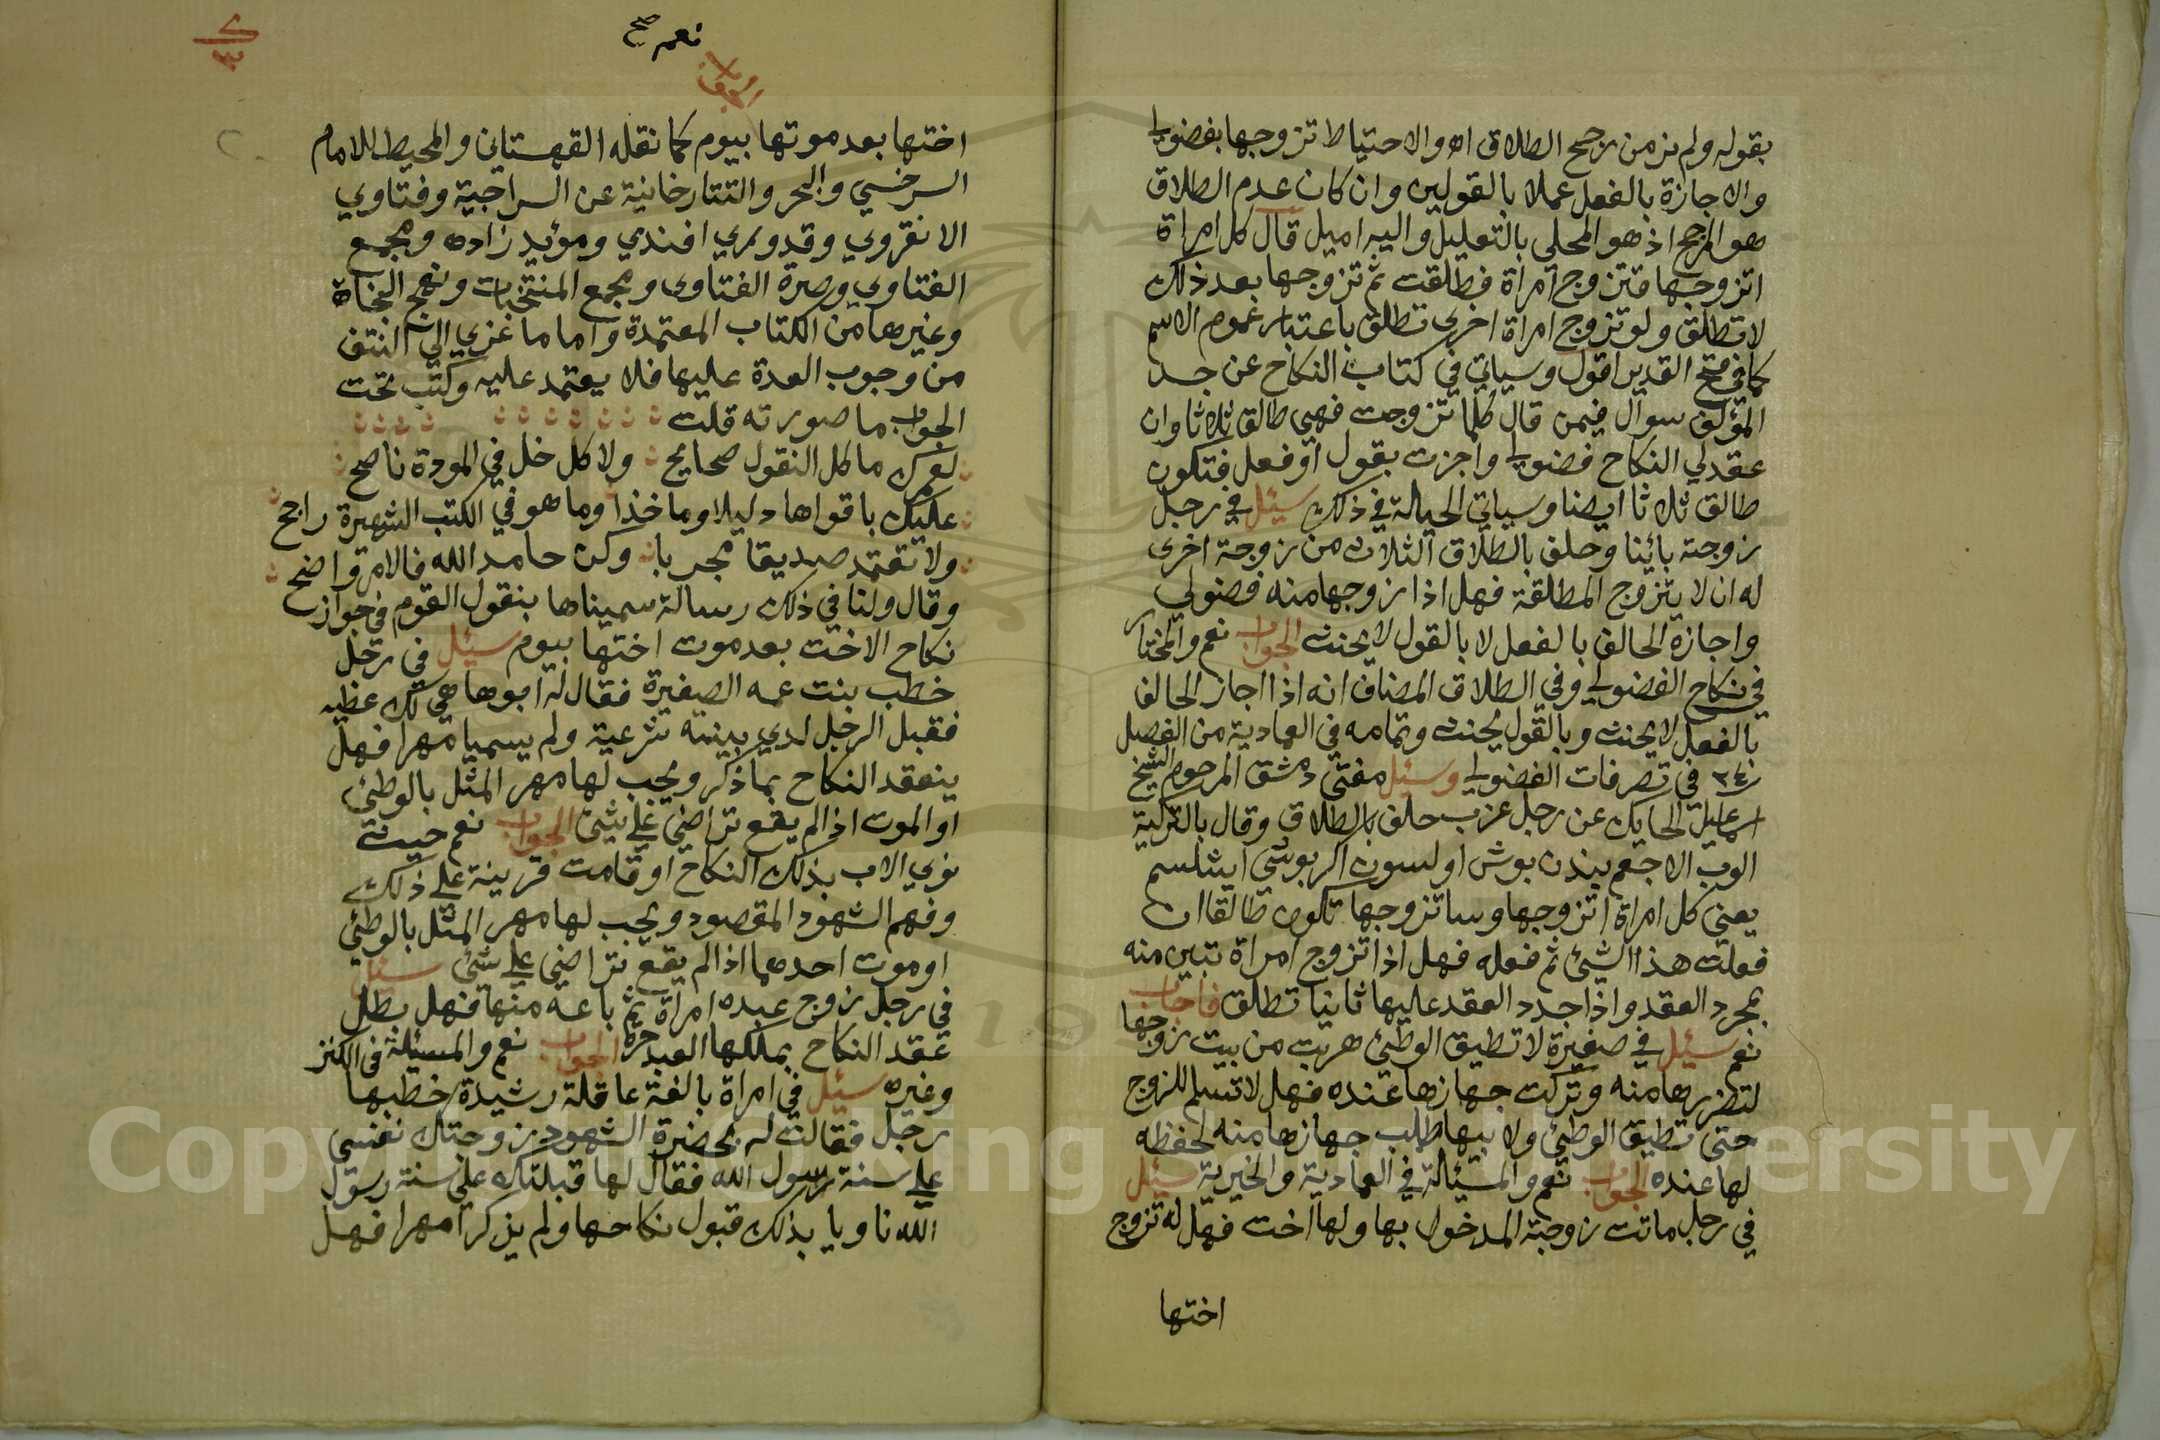 بقوله ولم نر من رجح الطلاق اه والاحتياط تزوجها بفضولي
والاجازة بالفعل عملا بالقولين وان كان عدم الطلاق
هو المرجح اذ هو المحلى بالتعليل واليه اميل قال كل امراة
اتزوجها فتزوج امراة فطلقت ثم تزوجها بعد ذلك
لا تطلق ولو تزوج امراة اخرى تطلق باعتبار عموم الاسم
كما في فتح القدير اقول وسياتي في كتاب النكاح عن جد
المؤلف سوال فيمن قال كلما تزوجت فهي طالق ثلاثا وان
عقد لي النكاح فضولي واجزت بقول او فعل فتكون
طالق ثلاثا ايضا وسياتي الحيلة في ذلك سئل في رجل
زوجته بائنا وحلف بالطلاق الثلاث من زوجة اخرى
له ان لا يتزوج المطلقة فهل اذا زوجها منه فضولي
واجازه الحالف بالفعل لا بالقول لا يحنث الجواب نعم والمختار
في نكاح الفضولي وفي الطلاق المضاف انه اذا اجاز الحالف
بالفعل لا يحنث وبالقول يحنث وتمامه في العمادية من الفصل
في تصرفات الفضولي وسئل مفتى دمشق المرحوم الشيخ
اسماعيل الحايك عن رجل عزب حلف بالطلاق وقال بالتركية
الوب الاجغم بندن بوش اولسون اكر بوشى ايشلسم
يعني كل امراة اتزوجها وساتزوجها تكون طالقا ان
فعلت هذا الشئ ثم فعله فهل اذا تزوج امراة تبين منه
بمجرد العقد واذا جدد العقد عليها ثانيا تطلق فاجاب
نعم سئل في صغيرة لا تطيق الوطئ هربت من بيت زوجها
لتضررها منه وتركت جهازها عنده فهل لا تسلم للزوج
حتى تطيق الوطئ ولابيها طلب جهازها منه لحفظه
لها عنده الجواب نعم والمسئالة في العمادية والخيرية سئل
في رجل ماتت زوجته المدخول بها ولها اخت فهل له تزوج
اختها
نعم صح
الجواب
اختها بعد موتها بيوم كما نقله القهستاني والمحيط للامام
السرخسي والبحر والتتارخانية عن السراجية وفتاوي
الانقروي وقدوري افندي ومؤيد زاده ومجمع
الفتاوي وصرة الفتاوى ومجمع المنتخبات ونهج النجاة
وغيرها من الكتاب المعتمدة واما ما عزي الى النتف
من وجوب العدة عليها فلا يعتمد عليه وكتب تحت
الجواب ما صورته قلت
لعمرك ما كل النقول صحايح ولا كل خل في المودة ناصح
عليك باقواها دليلا وماخذا وما هو في الكتب الشهيرة راجح
ولا تعتمد صديقا مجربا وكن حامد الله فالامر واضح
وقال ولنا في ذلك رسالة سميناها بنقول القوم في جواز
نكاح الاخت بعد موت اختها بيوم سئل في رجل
خطب بنت عمه الصغيرة فقال له ابوها هي لك عطيه
فقبل الرجل لدي بينة شرعية ولم يسميا مهرا فهل
ينعقد النكاح بما ذكر ويجب لها مهر المثل بالوطئ
او الموت اذا لم يقع تراضي على شئ الجواب نعم حيث
نوي الاب بذلك النكاح او قامت قرينة على ذلك
وفهم الشهود المقصود ويجب لها مهر المثل بالوطئ
او موت احدهما اذا لم يقع تراضي على شئ سئل
في رجل زوج عبده امراة ثم باعه منها فهل بطل
عقد النكاح بملكها العبد حرة الجواب نعم والمسئلة في الكنز
وغيره سئل في امراة بالغة عاقلة رشيدة خطبها
رجل فقالت له بحضرة الشهود زوجتك نفسي
على سنة رسول الله فقال لها قبلتك على سنة رسول
الله ناويا بذلك قبول نكاحها ولم يذكرا مهرا فهل